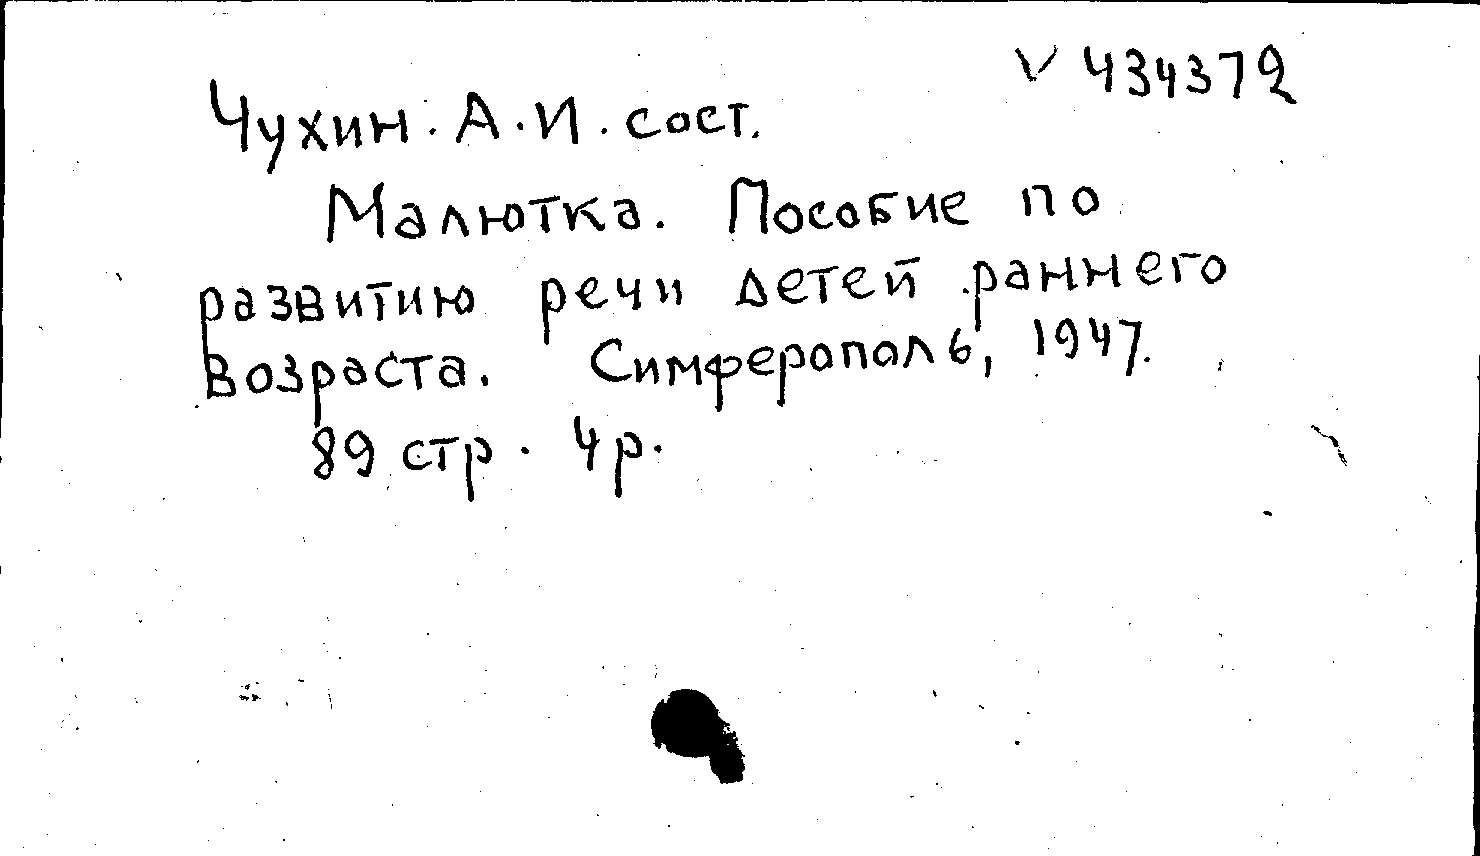 V 434372
Чухин. А. И. сост.
Малютка. Пособие по
развитию речи детей раннего
возраста. Симферополь, 1947.
89 стр. 4 р.